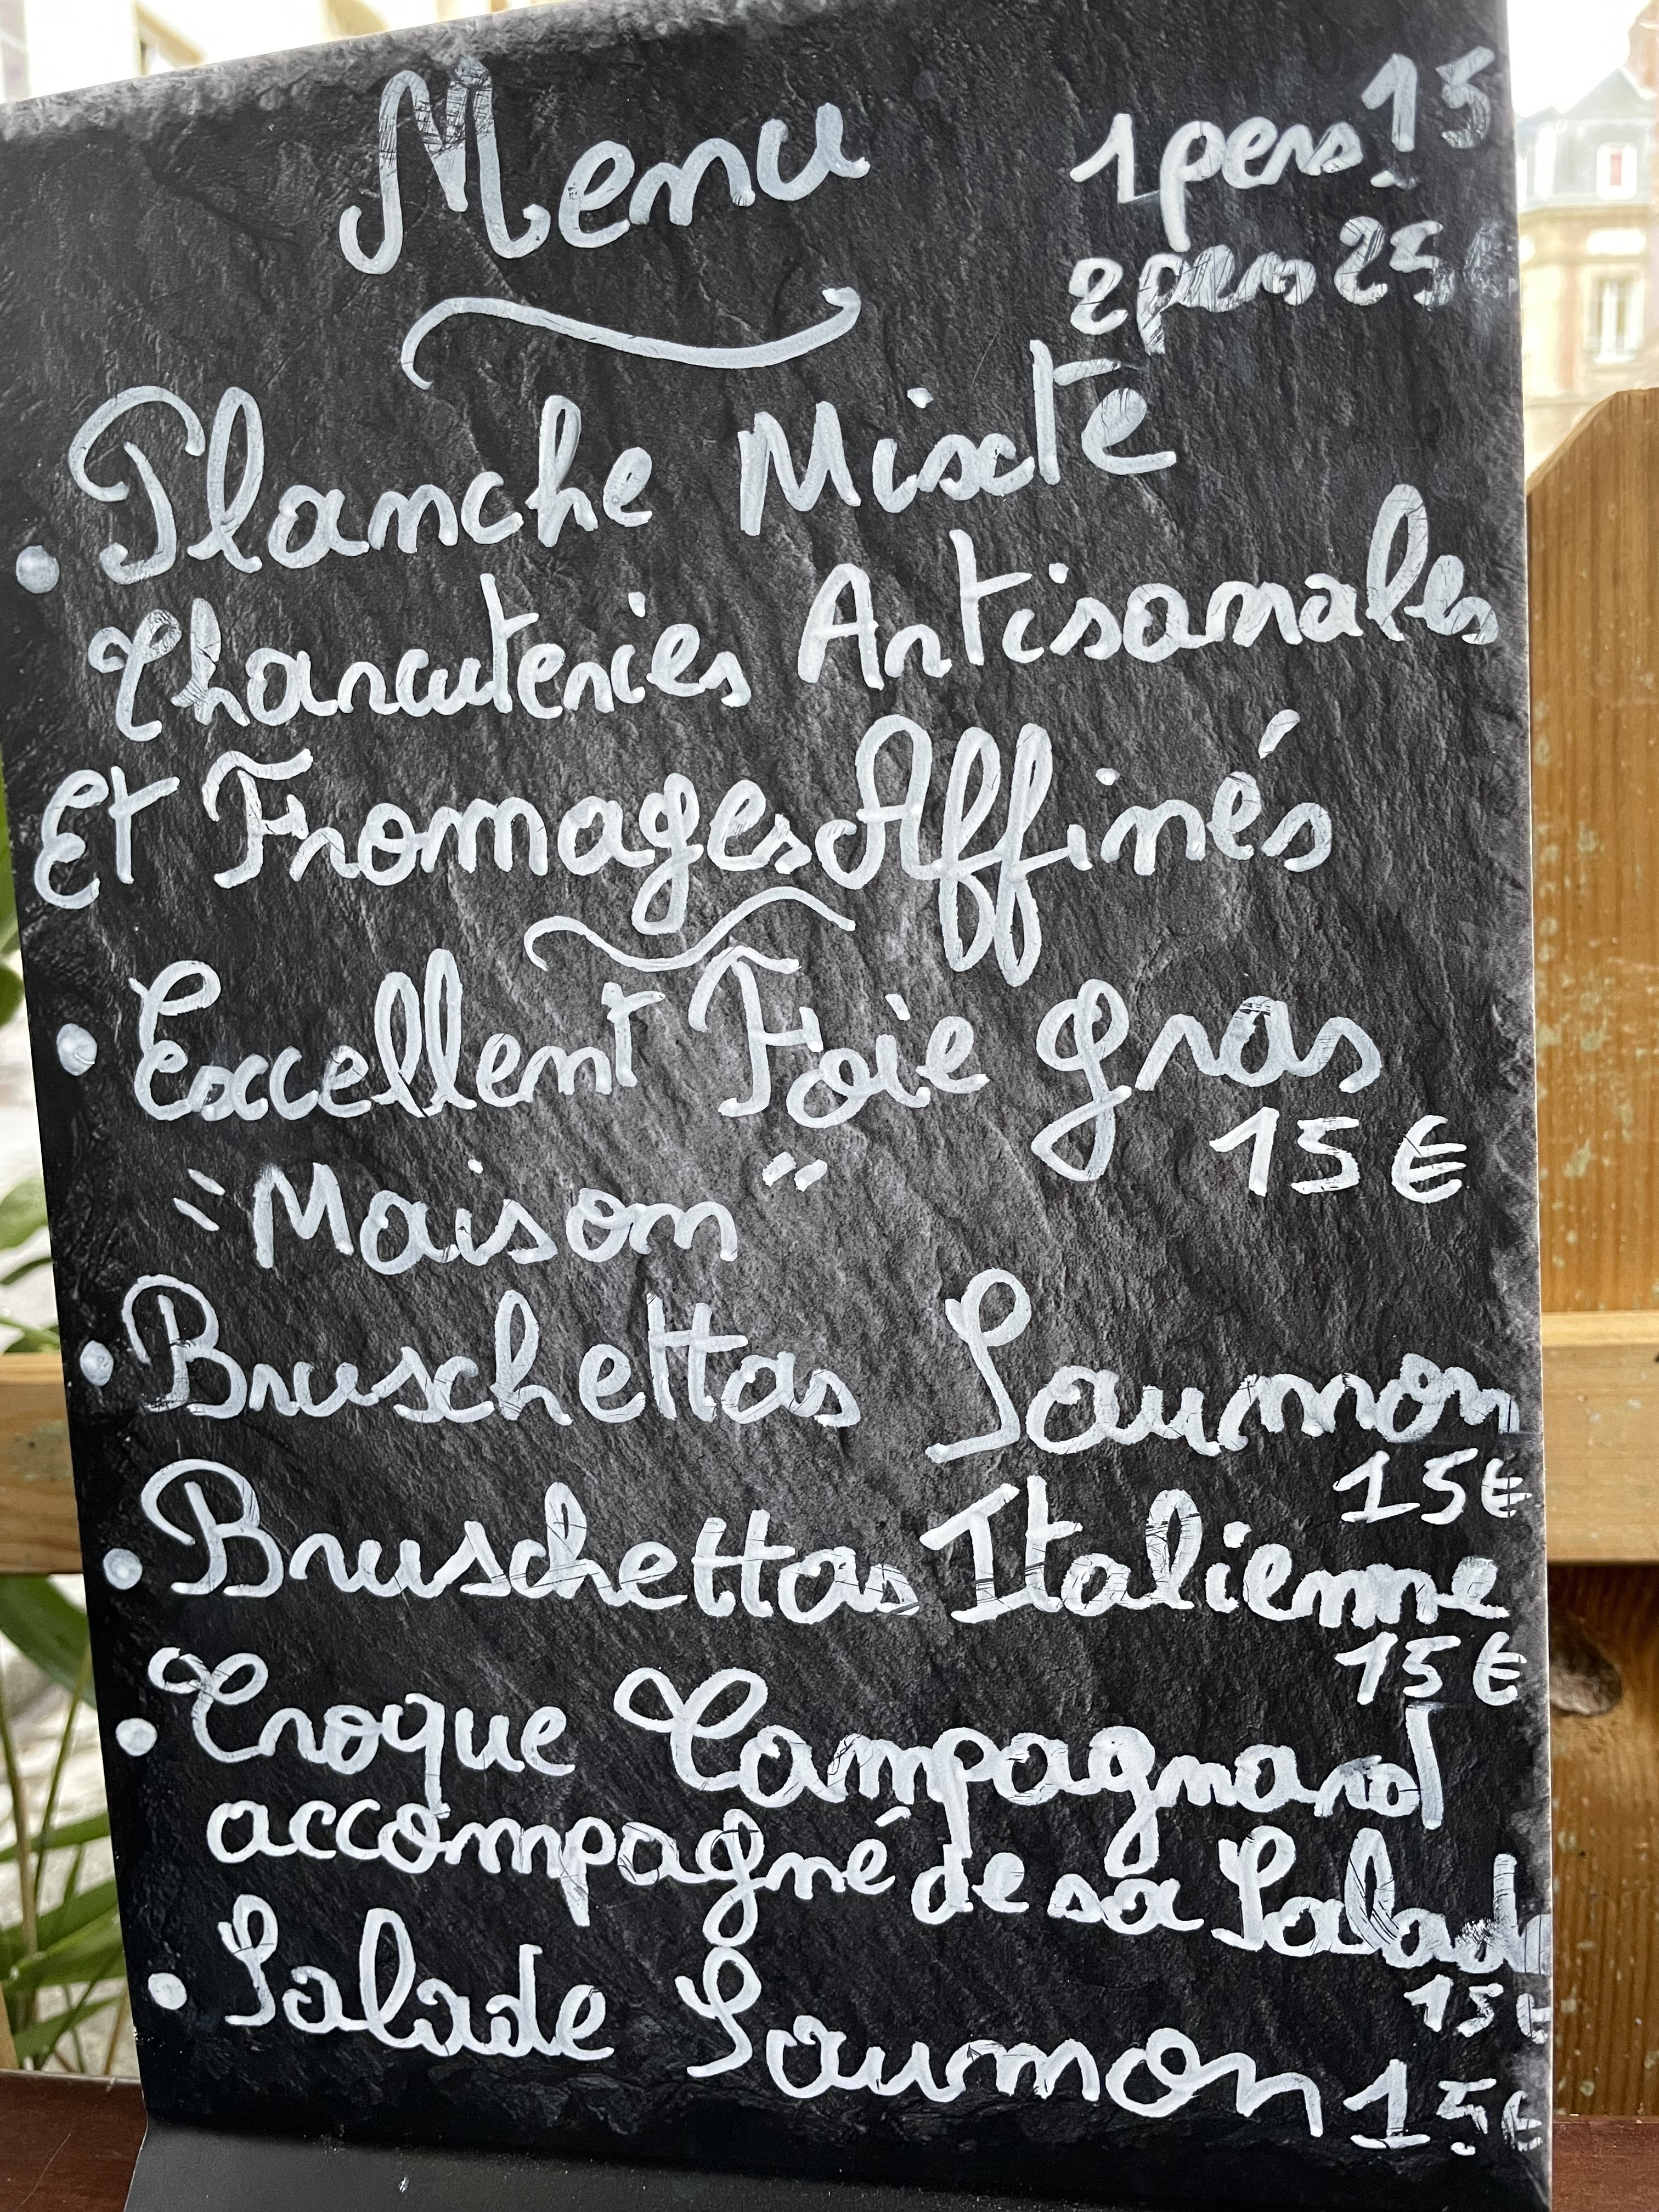 Menu
1 pers 15
2 pers 25€
• Planche Mixte
Charcuteries Artisanales
Et Fromages Affinés
• Excellent Foie gras
15 €
"Maison"
• Bruschettas Saumon
15€
• Bruschettas Italienne
15€
• Croque Campagnard
accompagné de sa Salade
15€
• Salade Saumon 15€